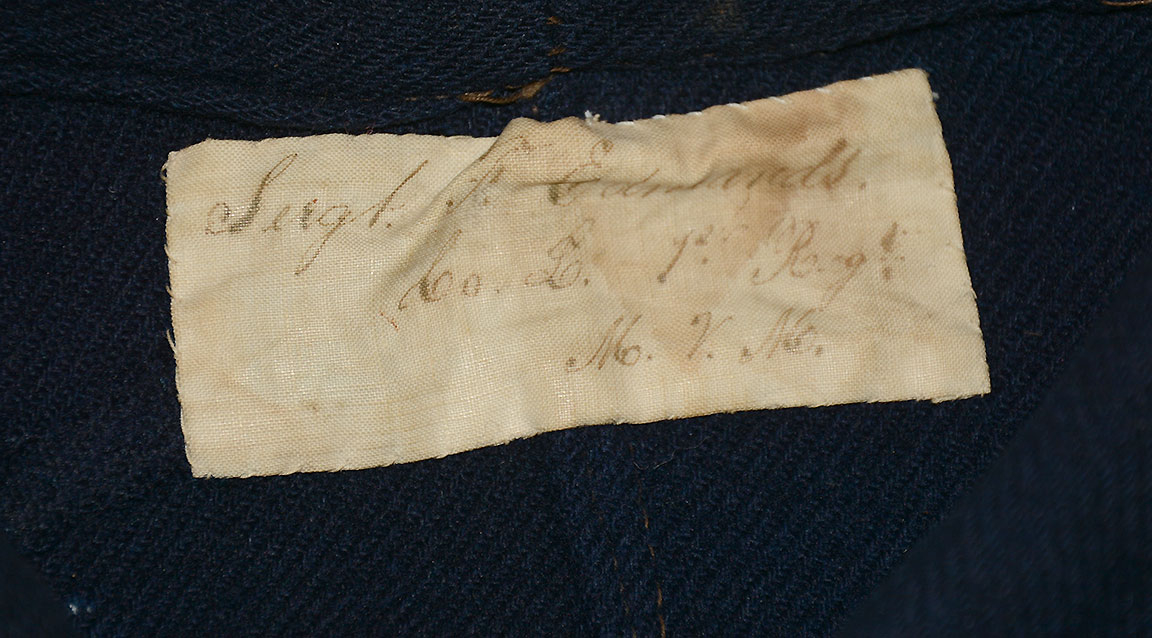 Sergt. A. Edmands.
Co. L. 1st Regt.
M. V. M.